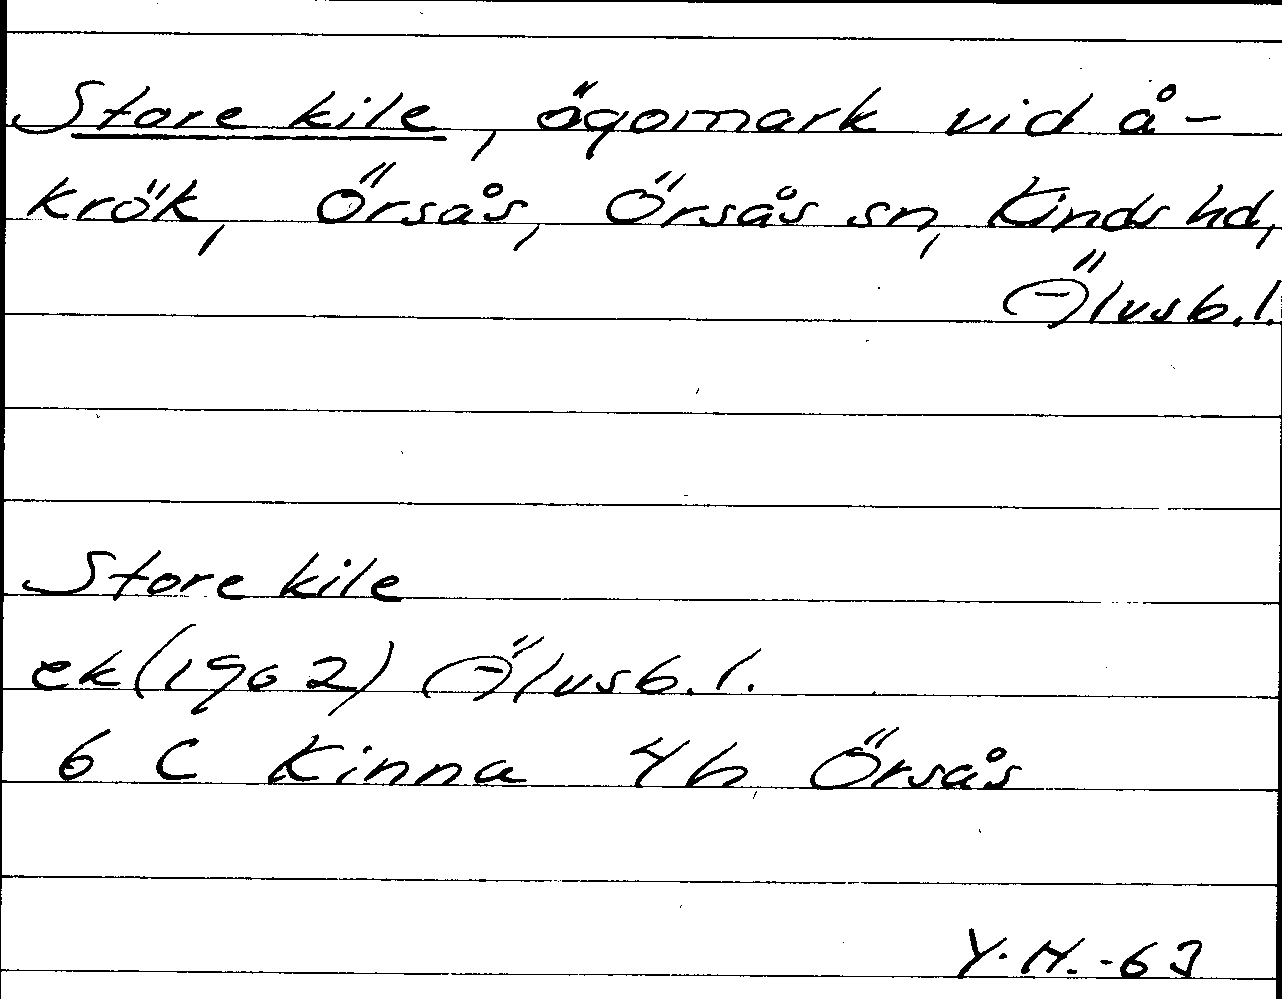 Store kile, ägomark vid å-
krök, Örsås, Örsås sn, Kinds hd,
Älvsb.l.
Store kile
ek (1962) Älvsb.l.
6 C Kinna 4h Örsås
Y.H.-63